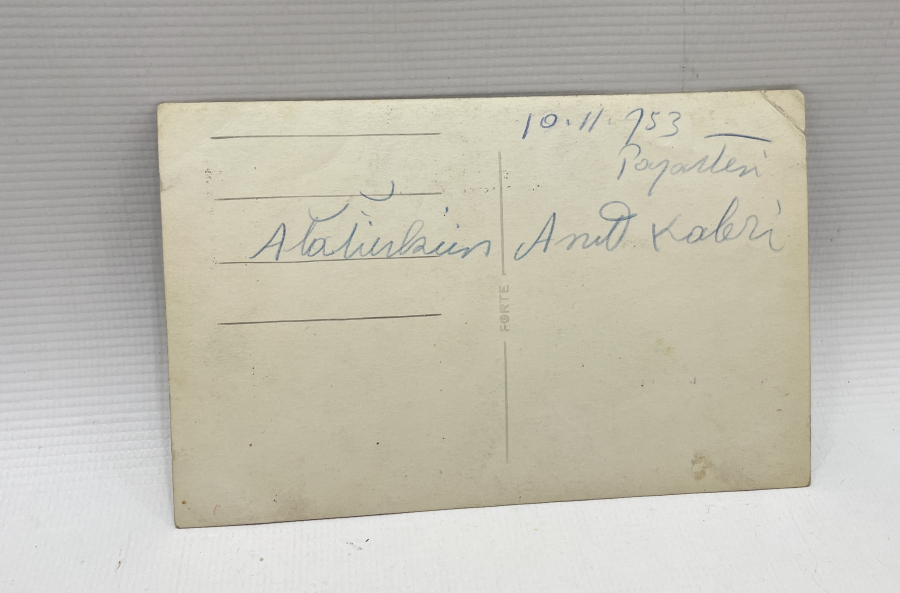 10.11.953
Pazartesi
Atatürkün Anıt Kabri
FORTE